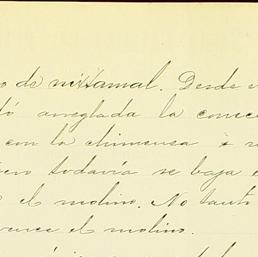 o de nixtamal. Desde e
dó arreglada la conec
con la chimenea i
ero todavia se baja
el molino. No tanto
vence el molino.